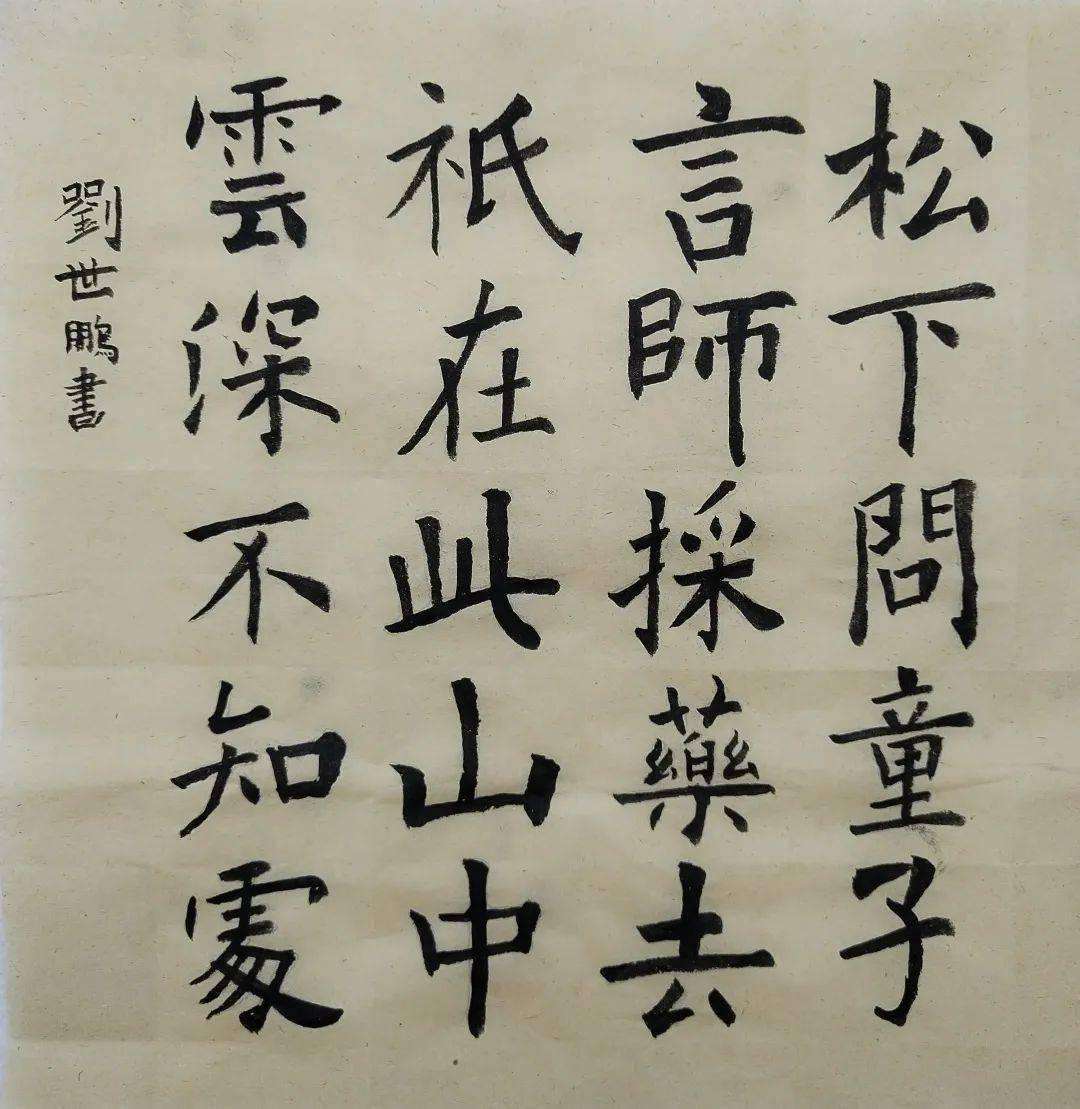 松下問童子
言師採藥去
祇在此山中
雲深不知處
劉世鵬書